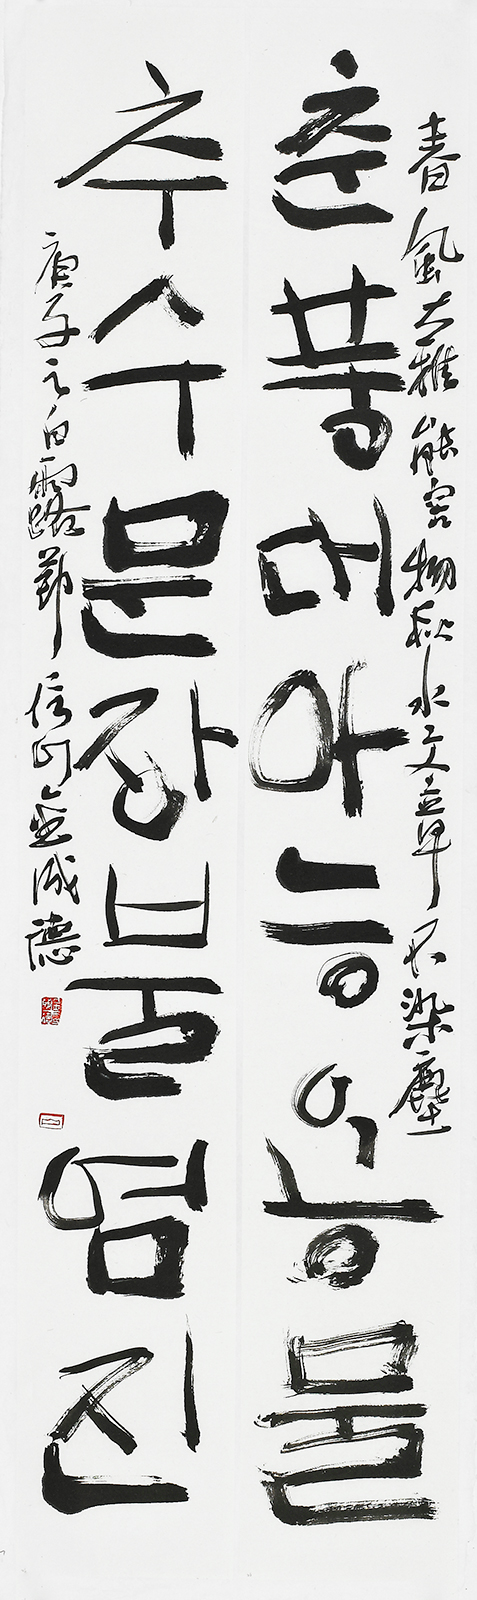 春風大雅能容物秋水文章不染塵
춘풍대아능용물
추수문장불염진
庚子之白露節 信 金 德